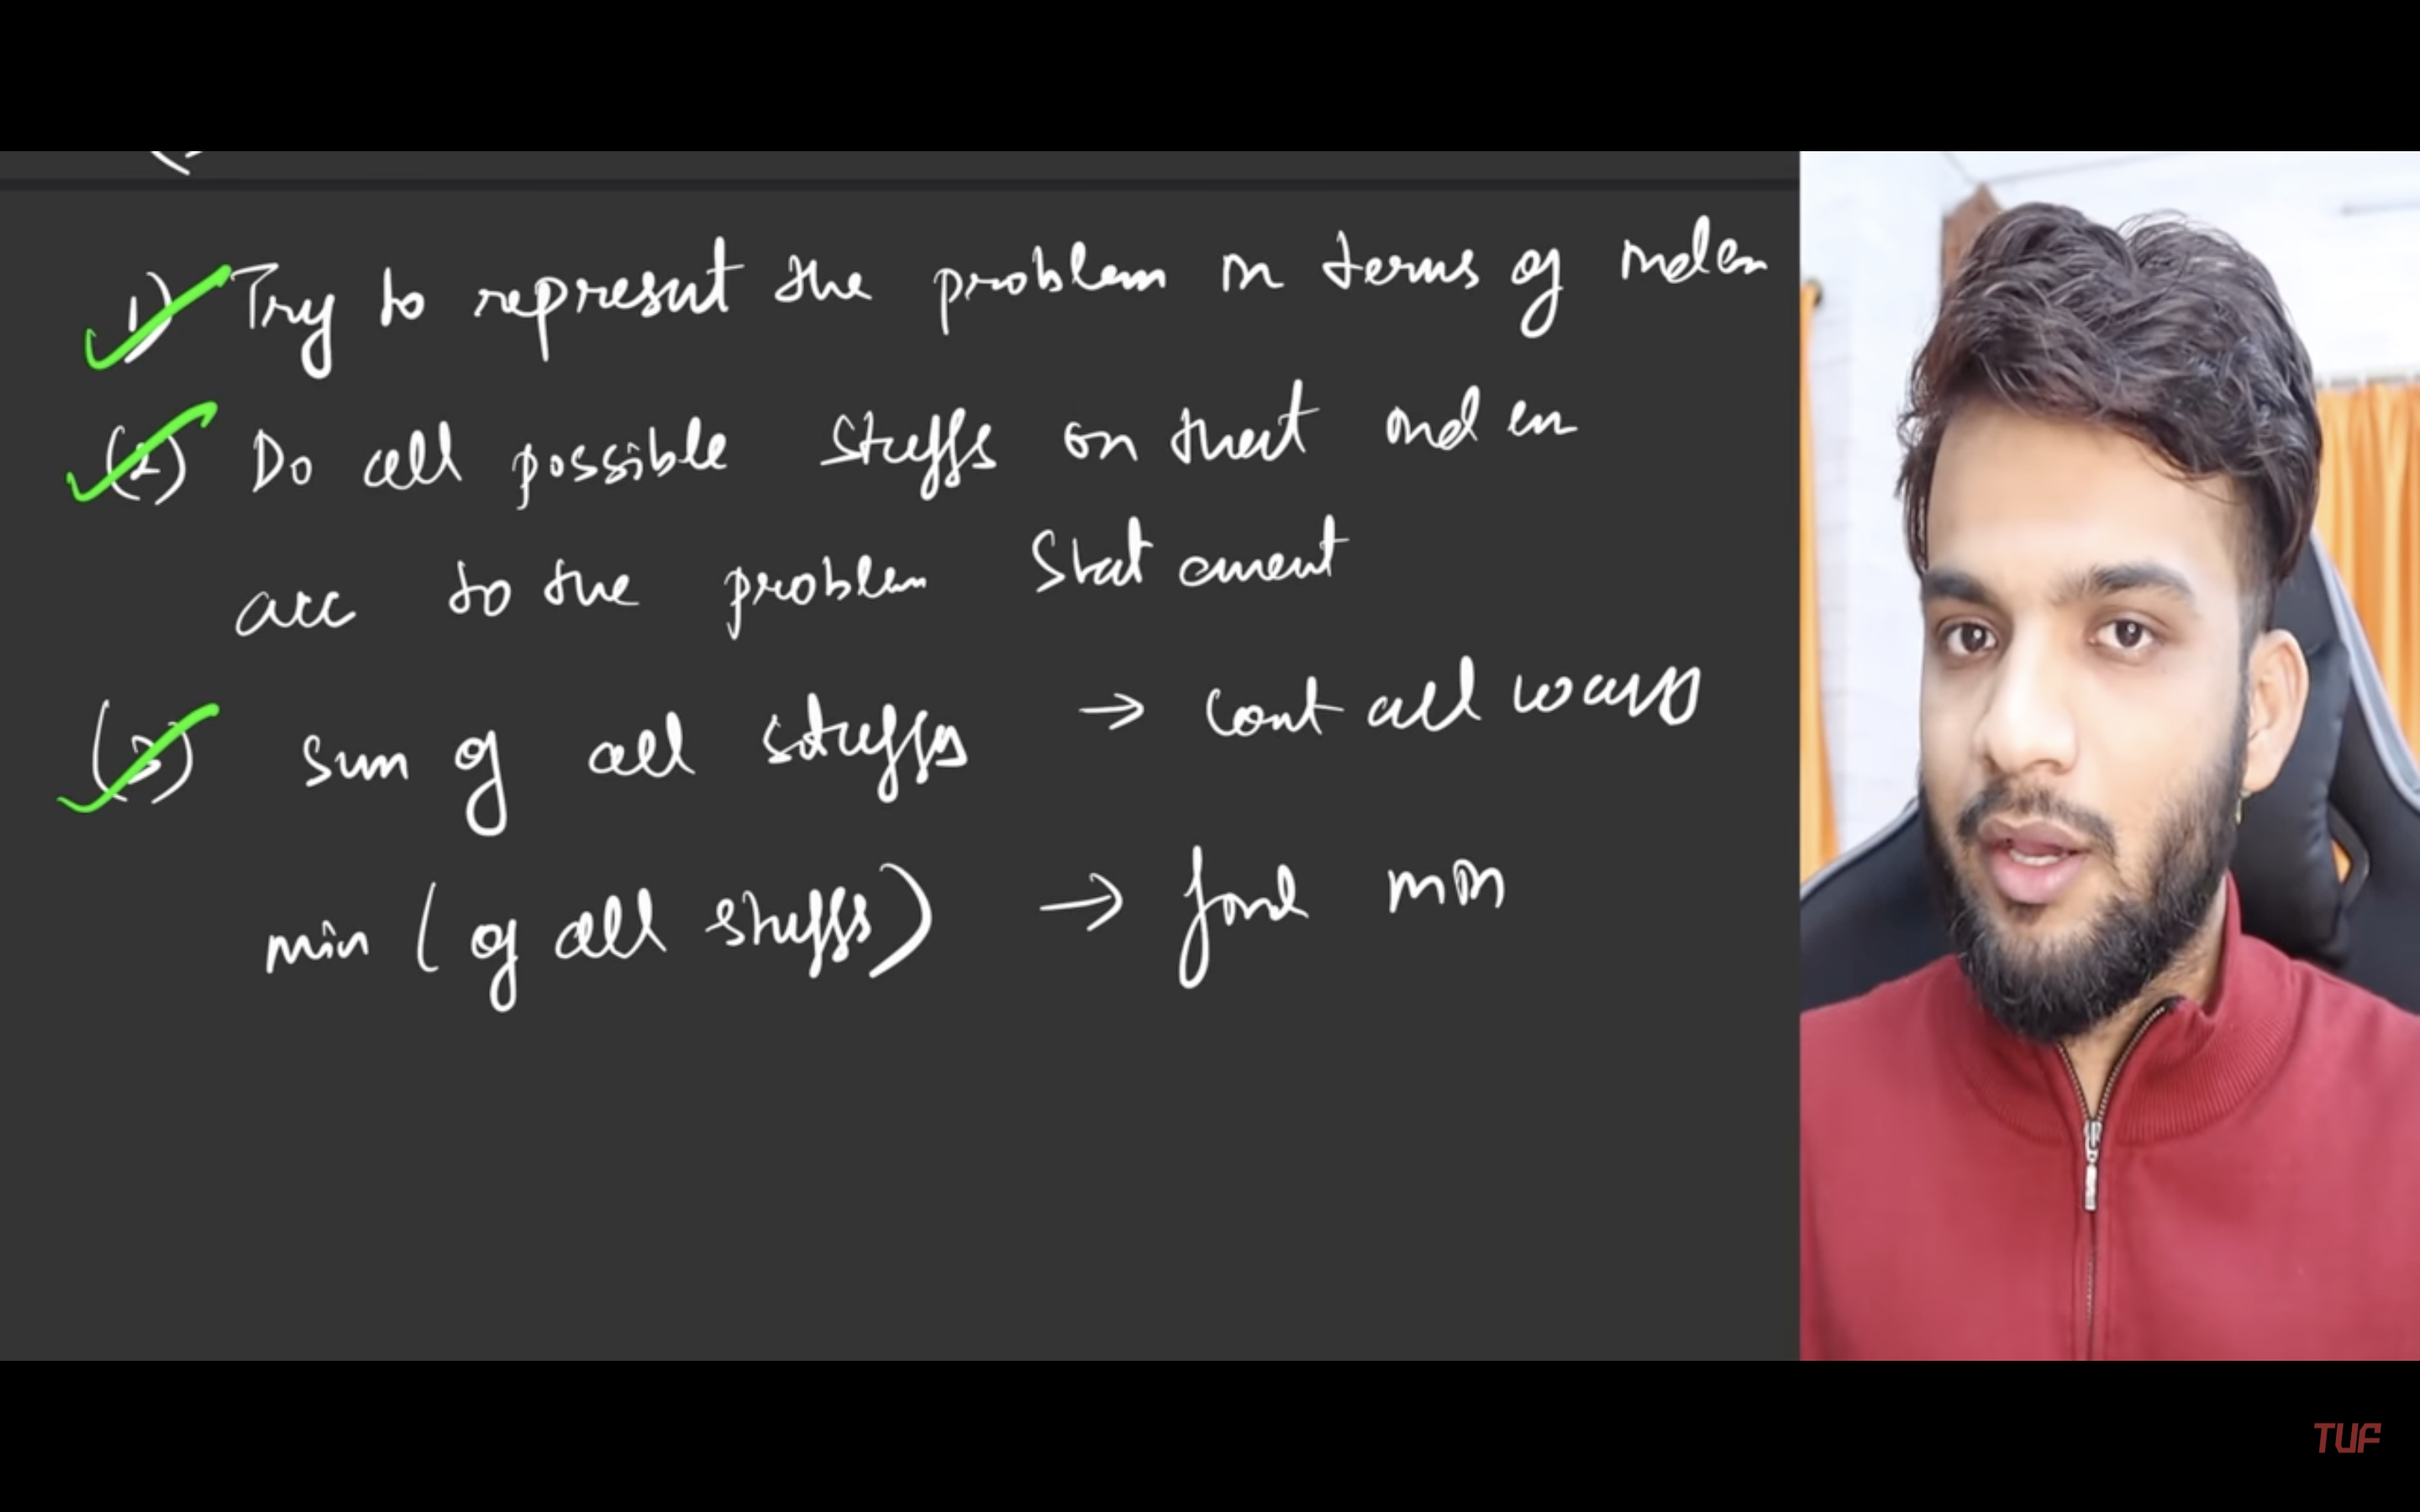 1) Try to represent the problem in terms of index
(2) Do all possible stuffs on that index
acc to the problem statement
(3) sum of all stuffs → count all ways
min (of all stuffs) → find min
TUF